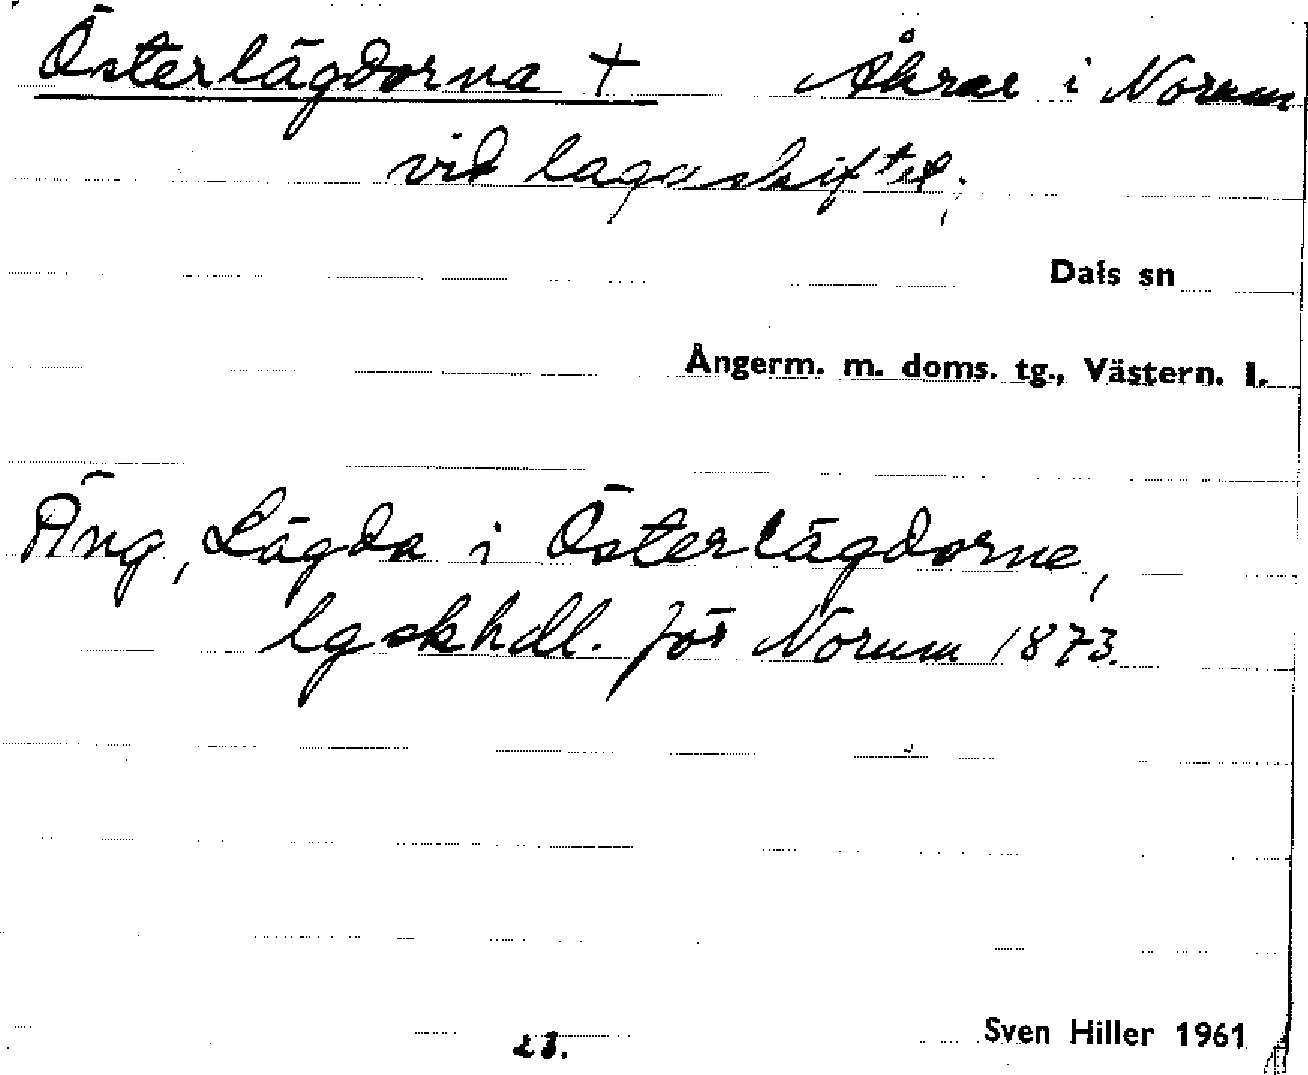 Österlägdorna † Åkrar i Norum
vid lagaskiftet;
Dals sn
Ångerm. m. doms. tg., Västern. l.
Äng, Lägda i Österlägdorne,
lgskhdl. för Norum 1873.
23.
Sven Hiller 1961